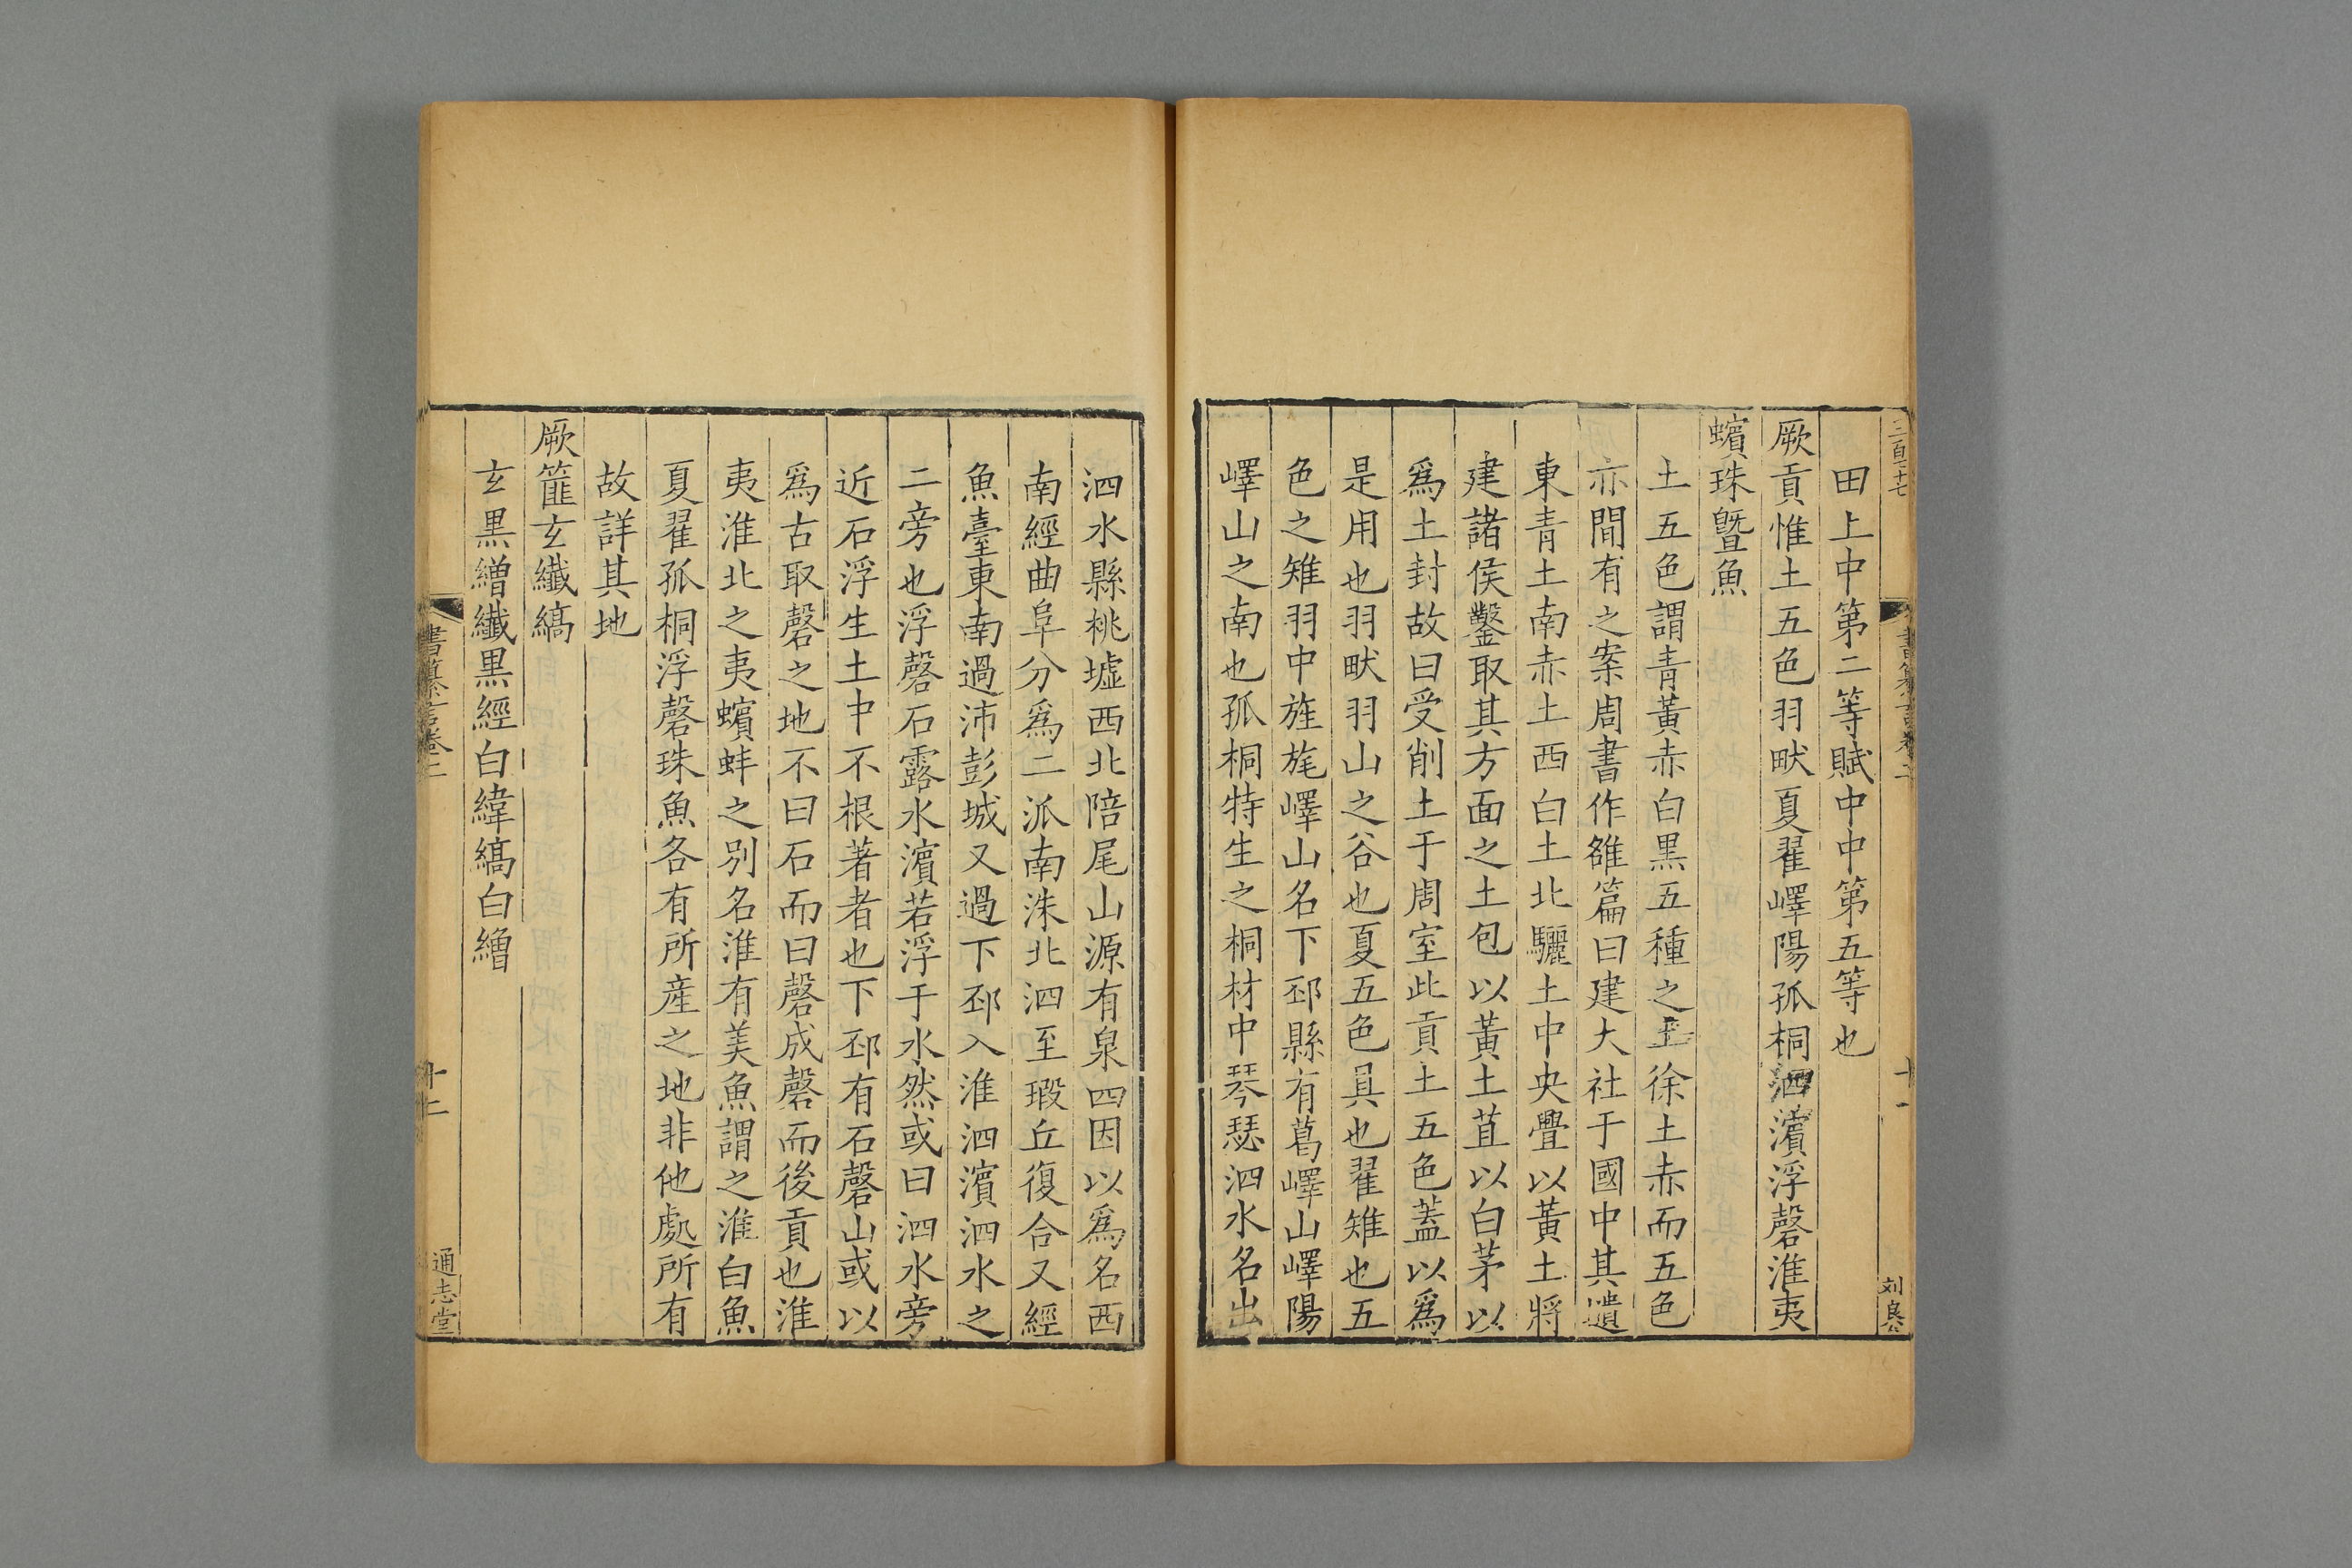 三百七十七
書纂言卷二
十一
刘良公
田上中第二等賦中中第五等也
厥貢惟土五色羽畎夏翟嶧陽孤桐泗濱浮磬淮夷
蠙珠曁魚
土五色謂青黃赤白黑五種之土徐土赤而五色
亦間有之案周書作雒篇曰建大社于國中其壝
東青土南赤土西白土北驪土中央疊以黃土將
建諸侯鑿取其方面之土包以黃土苴以白茅以
爲土封故曰受削土于周室此貢土五色蓋以爲
是用也羽畎羽山之谷也夏五色具也翟雉也五
色之雉羽中旌旄嶧山名下邳縣有葛嶧山嶧陽
嶧山之南也孤桐特生之桐材中琴瑟泗水名出
泗水縣桃墟西北陪尾山源有泉四因以爲名西
南經曲阜分爲二派南洙北泗至瑕丘復合又經
魚臺東南過沛彭城又過下邳入淮泗濱泗水之
二旁也浮磬石露水濱若浮于水然或曰泗水旁
近石浮生土中不根著者也下邳有石磬山或以
爲古取磬之地不曰石而曰磬成磬而後貢也淮
夷淮北之夷蠙蚌之別名淮有美魚謂之淮白魚
夏翟孤桐浮磬珠魚各有所産之地非他處所有
故詳其地
厥篚玄纖縞
玄黑繒纖黑經白緯縞白繒
書纂言卷二
十二
通志堂